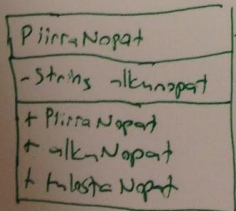 PiirraNopat
- String alkunopat
+ PiirraNopat
+ alkuNopat
+ tulostaNopat